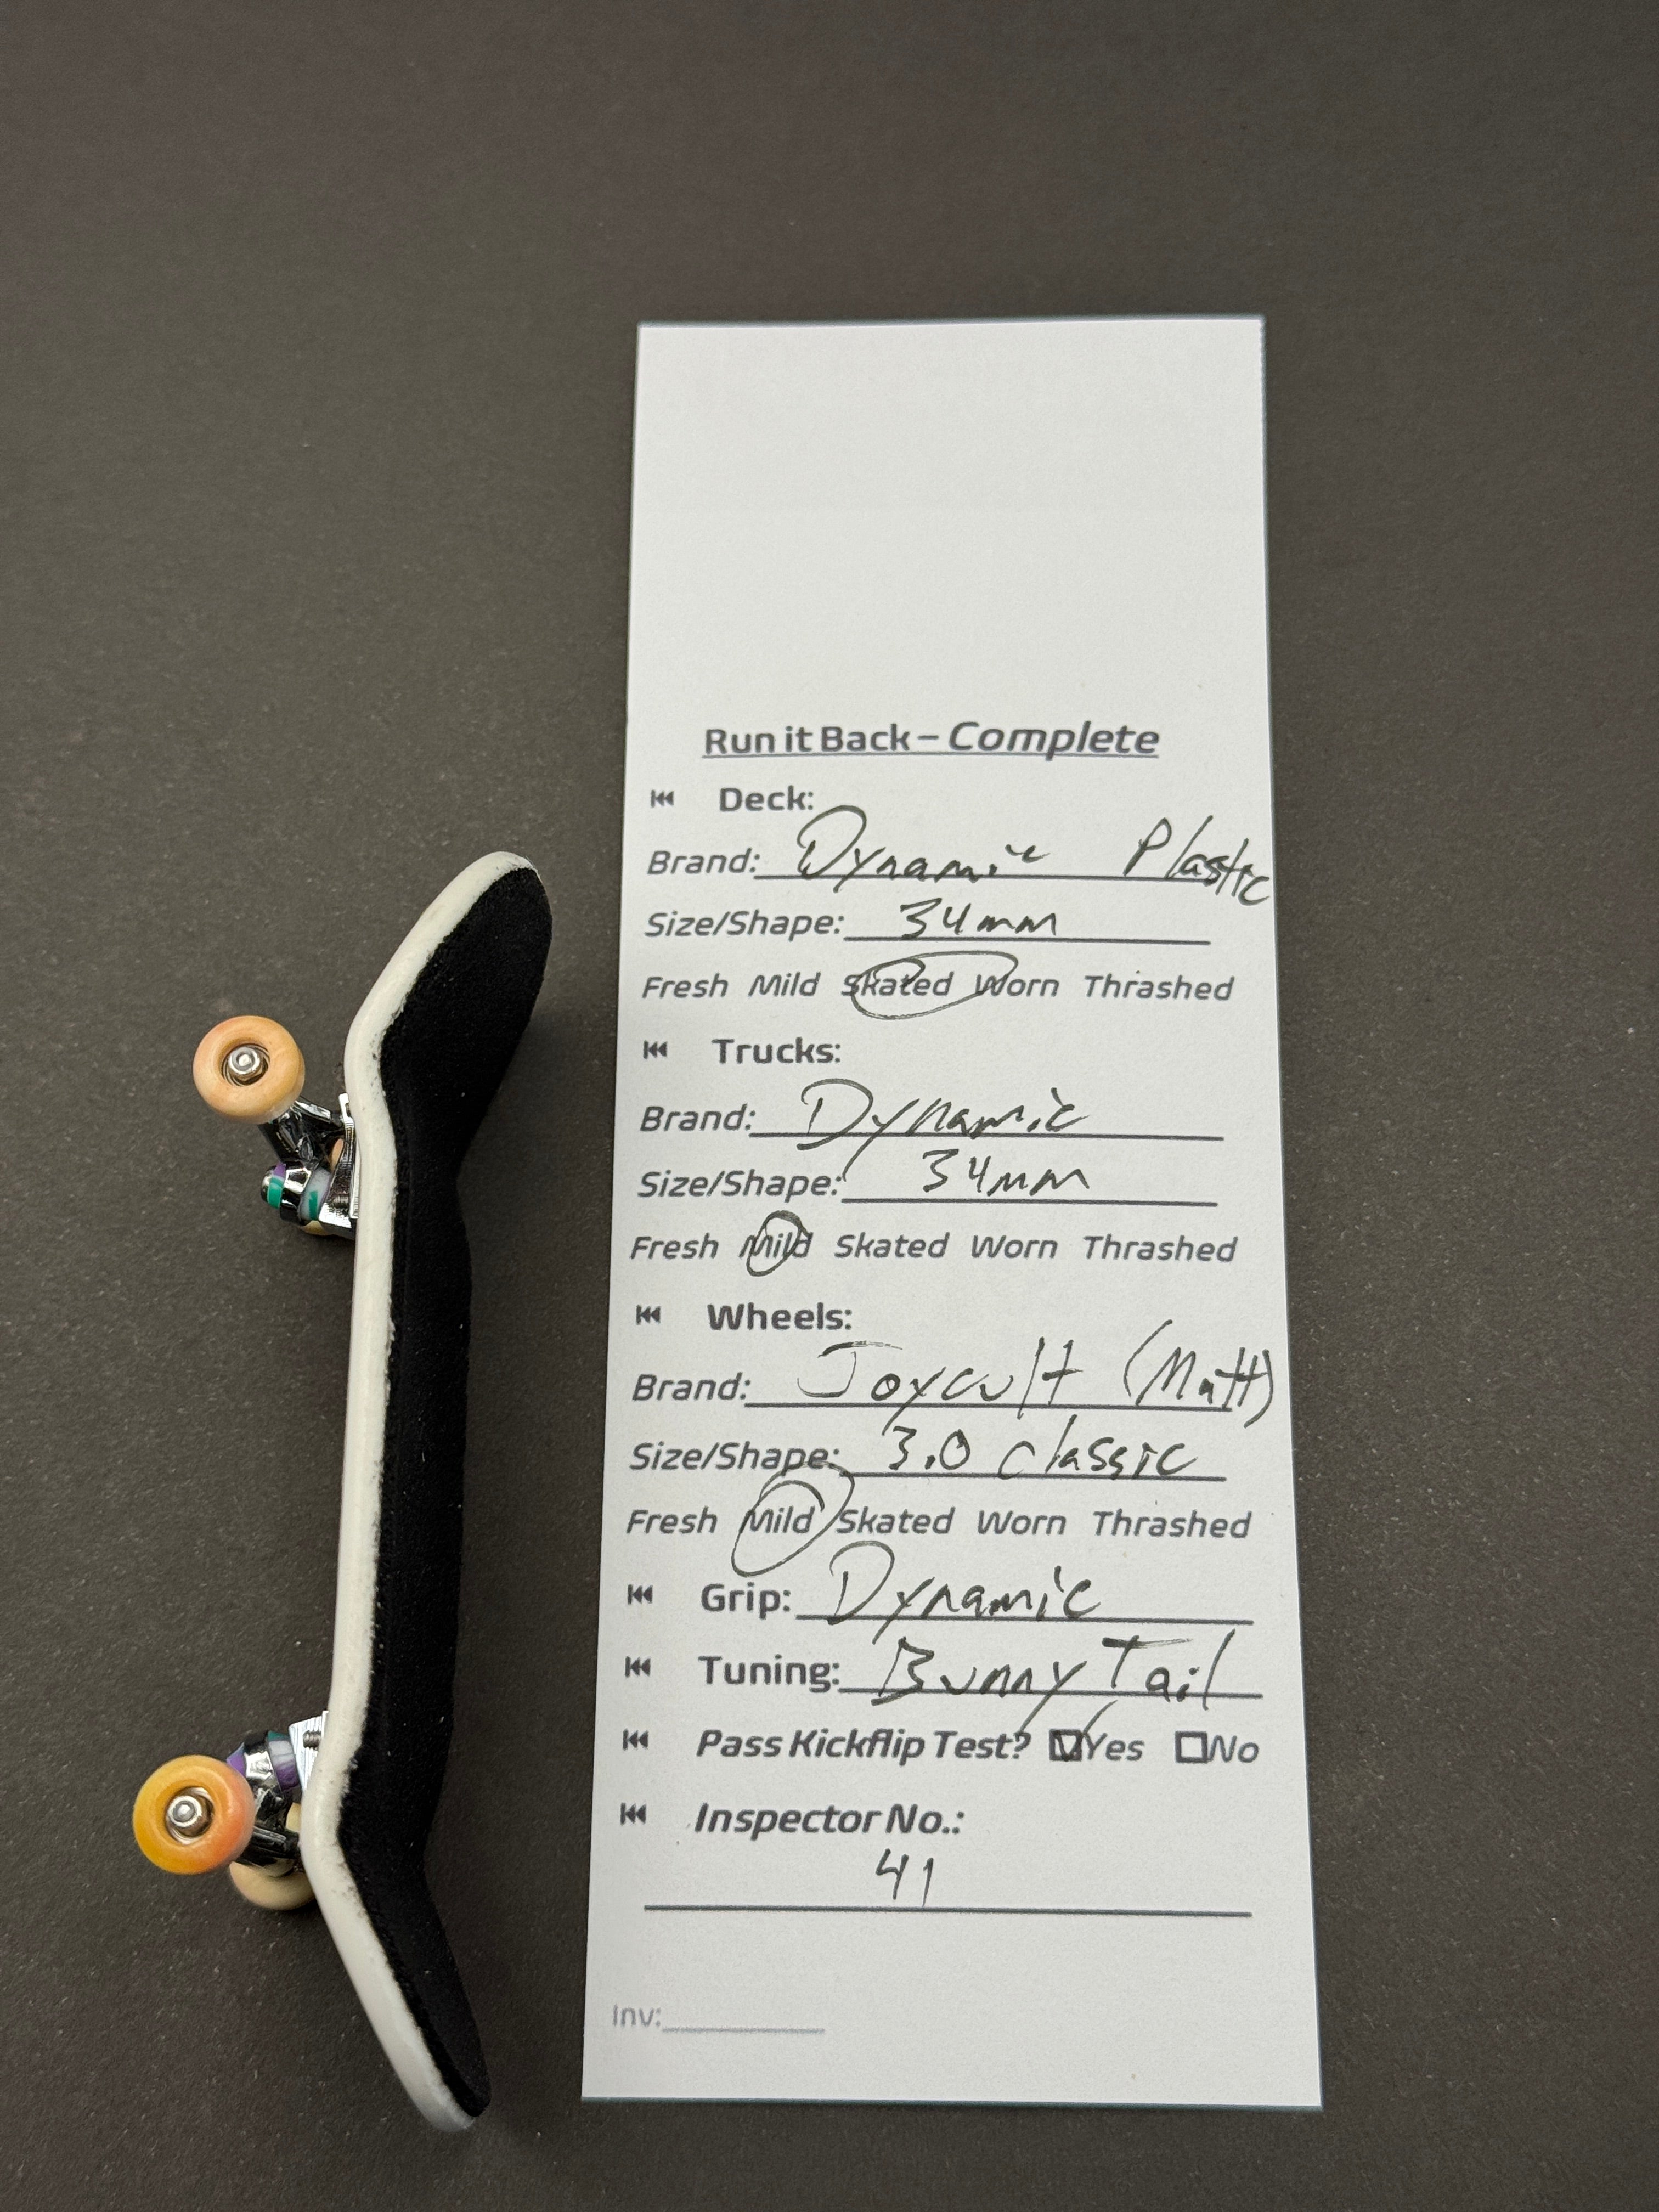 Run it Back – Complete
Deck:
Brand: Dynamic Plastic
Size/Shape: 34mm
Fresh Mild Skated Worn Thrashed
Trucks:
Brand: Dynamic
Size/Shape: 34mm
Fresh Mild Skated Worn Thrashed
Wheels:
Brand: Joycult (Matt)
Size/Shape: 3.0 classic
Fresh Mild Skated Worn Thrashed
Grip: Dynamic
Tuning: Bunny Tail
Pass Kickflip Test? ☑Yes ☐No
Inspector No.:
41
Inv: